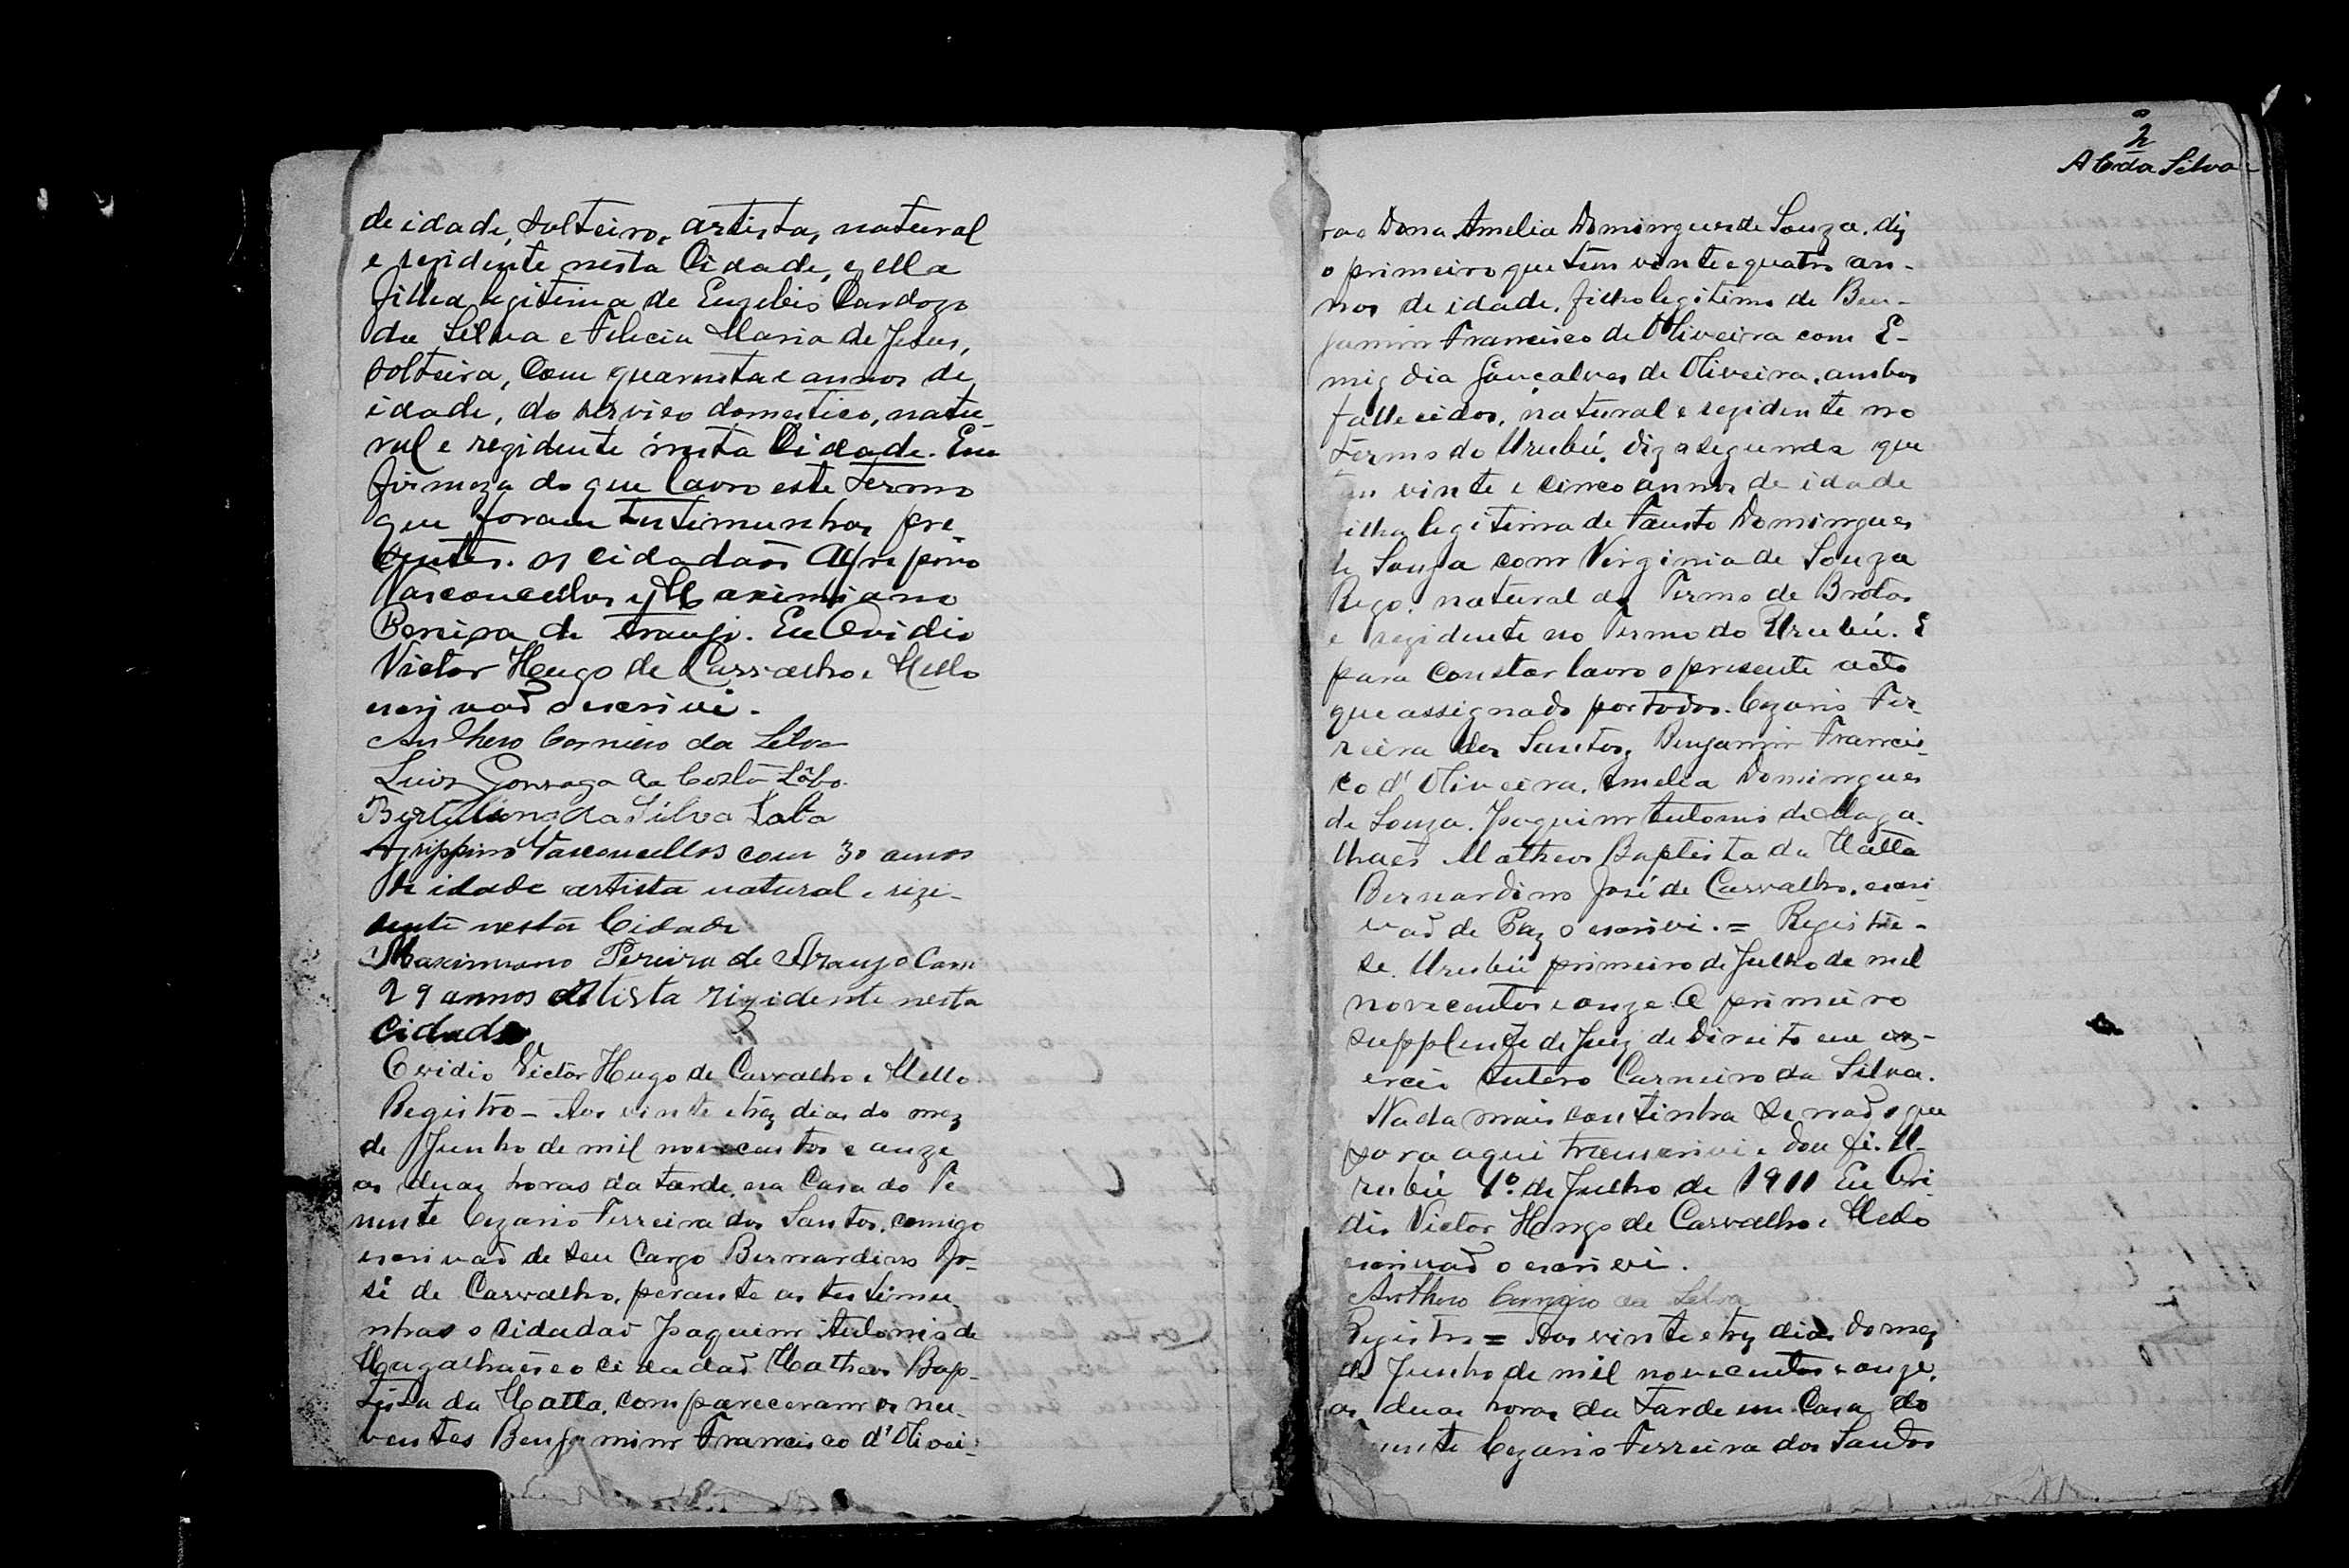 de idade, solteiro, artista, natural
e rezidente nesta Cidade, e ella
filha legitima de Euzebio Cardozo
da Silva e Felicia Maria de Jesus,
solteira, com quarenta e annos de
idade, do serviço domestico, natu-
ral e rezidente nesta Cidade. Em
firmeza do que lavro este termo
que foram testimunhas pre-
zentes. os cidadaõs Agrepino
Vasconcellos e Maximiano
Pereira de Araujo. Eu Ovidio
Victor Hugo de Carvalho e Mello
escrivaõ o escrivi.
Anthero Carneiro da Silva
Luiz Gonzaga da Costa Lôbo.
Bertulino da Silva Lôba
Agrippino Vasconcellos com 30 annos
de idade artista natural e rizi-
dente nesta Cidade
Maximiano Pereira de Araujo Com
29 annos artista rizidente nesta
Cidade
Ovidio Victor Hugo de Carvalho e Mello
Registro - Aos vinte e trez dias do mez
de Junho de mil novecentos e onze
as duas horas da tarde, em Casa do Te
nente Cezario Ferreira dos Santos, comigo
escrivaõ de seu Cargo Bernardino Jo-
sé de Carvalho, perante as testimu-
nhas o Cidadaõ Joaquim Antonio de
Magalhaẽs e o Cidadaõ Matheos Bap-
tista da Matta, compareceram os nu-
bentes Benjamim Francisco d'Olivei-
2
A C da Silva
ra e Dona Amelia Domingues de Souza. diz
o primeiro que tem vinte e quatro an-
nos de idade, filho legitimo de Ben-
jamim Francisco de Oliveira com E-
migdia Gonçalves de Oliveira, ambos
fallecidos, natural e rezidente no
termo do Urubú. Diz a segunda que
tem vinte e cinco annos de idade
filha legitima de Fausto Domingues
de Souza com Virginia de Souza
Rego. natural do Termo de Brotas
e rezidente no Termo do Urubú. E
para constar lavro o presente acto
que assignado por todos. Cezario Fer-
reira dos Santos, Benjamim Francis-
co d'Oliveira, Amelia Domingues
de Souza. Joaquim Antonio de Maga-
lhaẽs Matheos Baptista da Matta
Bernardino José de Carvalho, escri-
vaõ de Paz o escrivi. = Registre-
se. Urubú primeiro de Julho de mil
novecentos e onze O primeiro
supplente de Juiz de Direito em ex-
ercio Antero Carneiro da Silva.
Nada mais continha se naõ o que
para aqui transcrivi e dou fé. U-
rubú 1º de Julho de 1911 Eu Ovi-
dio Victor Hugo de Carvalho e Mello
escrivaõ o escrivi.
Anthero Carneiro da Silva
Registro = Aos vinte e trez dias do mez
de Junho de mil novecentos e onze.
as duas horas da tarde em Casa do
Tenente Cezario Ferreira dos Santos